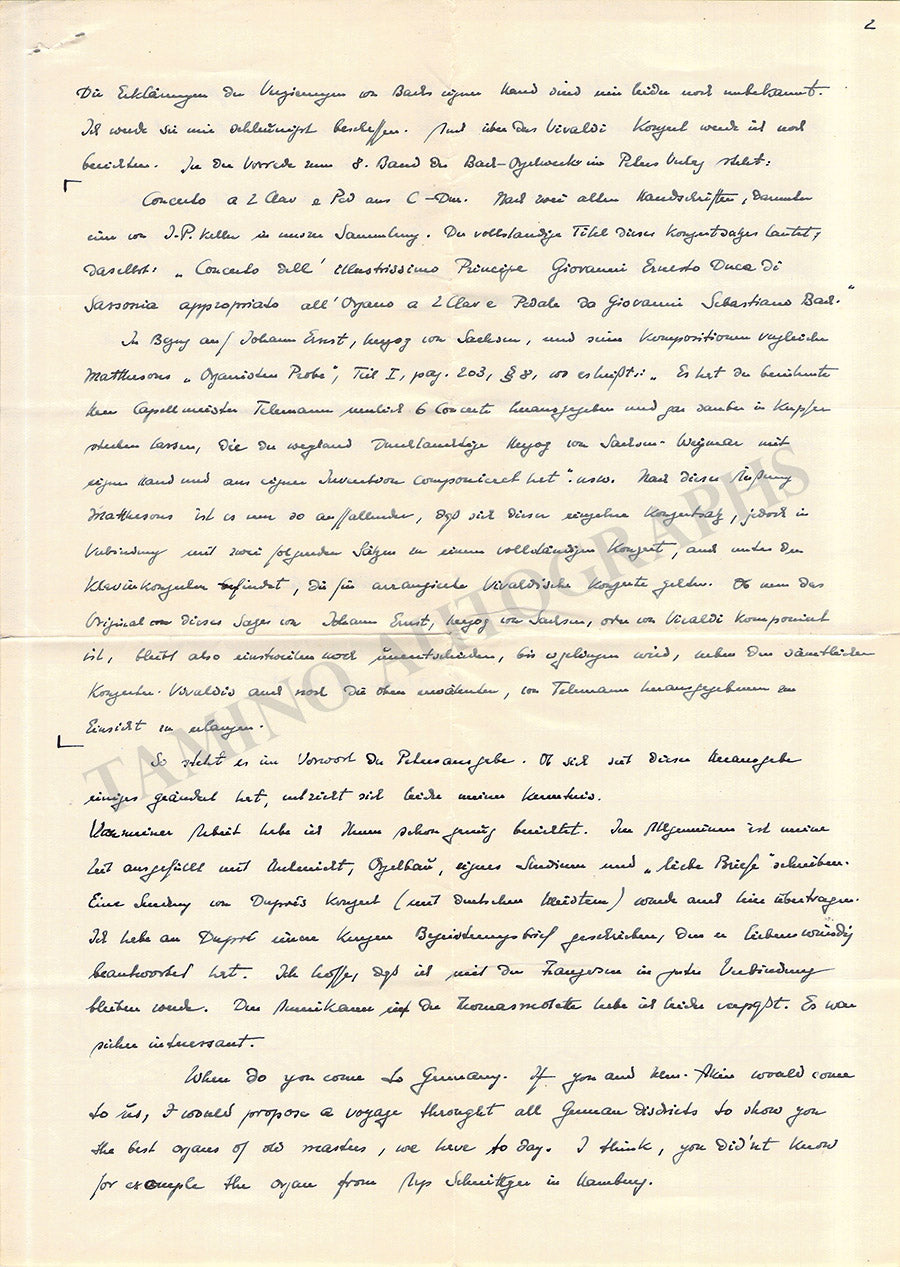 2
Die Erklärungen der Verzierungen von Bachs eigner Hand sind mir leider noch unbekannt.
Ich werde sie mir schleunigst beschaffen. Auch über das Vivaldi Konzert werde ich noch
berichten. In der Vorrede zum 8. Band der Bach-Orgelwerke im Peters Verlag steht:
Concerto a 2 Clav e Ped aus C-Dur. Nach zwei alten Handschriften, darunter
eine von J.P. Keller in unsrer Sammlung. Der vollständige Titel dieses Konzertsatzes lautet,
daselbst: „Concerto dell' illustrissimo Principe Giovanni Ernesto Duca di
Sassonia appropriato all'Organo a 2 Clav e Pedale da Giovanni Sebastiano Bach."
In Bezug auf Johann Ernst, Herzog von Sachsen, und seine Kompositionen vergleiche
Matthesons „Organisten Probe", Teil I, pag. 203, § 8, wo es heißt: „Es hat der berühmte
Herr Capellmeister Telemann neulich 6 Concerti herausgegeben und gar sauber in Kupfer
stechen lassen, die der weyland Durchlauchtige Herzog von Sachsen-Weymar mit
eigner Hand und aus eigner Invention componieret hat". usw. Nach dieser Äußerung
Matthesons ist es um so auffallender, daß sich dieser einzelne Konzertsatz, jedoch in
Verbindung mit zwei folgenden Sätzen zu einem vollständigen Konzert, auch unter den
Klavierkonzerten befindet, die für arrangierte Vivaldische Konzerte gelten. Ob nun das
Original von dieses Sazes von Johann Ernst, Herzog von Sachsen, oder von Vivaldi komponiert
ist, bleibt also einstweilen noch unentschieden, bis es gelingen wird, neben den sämtlichen
Konzerten Vivaldis auch noch die oben erwähnten, von Telemann herausgegebenen zur
Einsicht zu erlangen.
So steht es im Vorwort der Petersausgabe. Ob sich seit dieser Herausgabe
einiges geändert hat, entzieht sich leider meiner Kenntnis.
Von meiner Arbeit habe ich Ihnen schon genug berichtet. Im Allgemeinen ist meine
Zeit ausgefüllt mit Unterricht, Orgelbau, eignes Studium und „liebe Briefe" schreiben.
Eine Sendung von Duprés Konzert (mit deutschen Meistern) wurde auch hier übertragen.
Ich habe an Dupré einen kurzen Begeisterungsbrief geschrieben, den er liebenswürdig
beantwortet hat. Ich hoffe, daß ich mit den Franzosen in guter Verbindung
bleiben werde. Den Amerikaner in der Thomasmotette habe ich leider verpaßt. Es war
sicher interessant.
When do you come to Germany. If you and Hern. Akin would come
to us, I would propose a voyage throught all German districts to show you
the best organs of old masters, we have to day. I think, you did'nt know
for example the organ from Arp Schnittger in Hamburg.
TAMINO AUTOGRAPHS